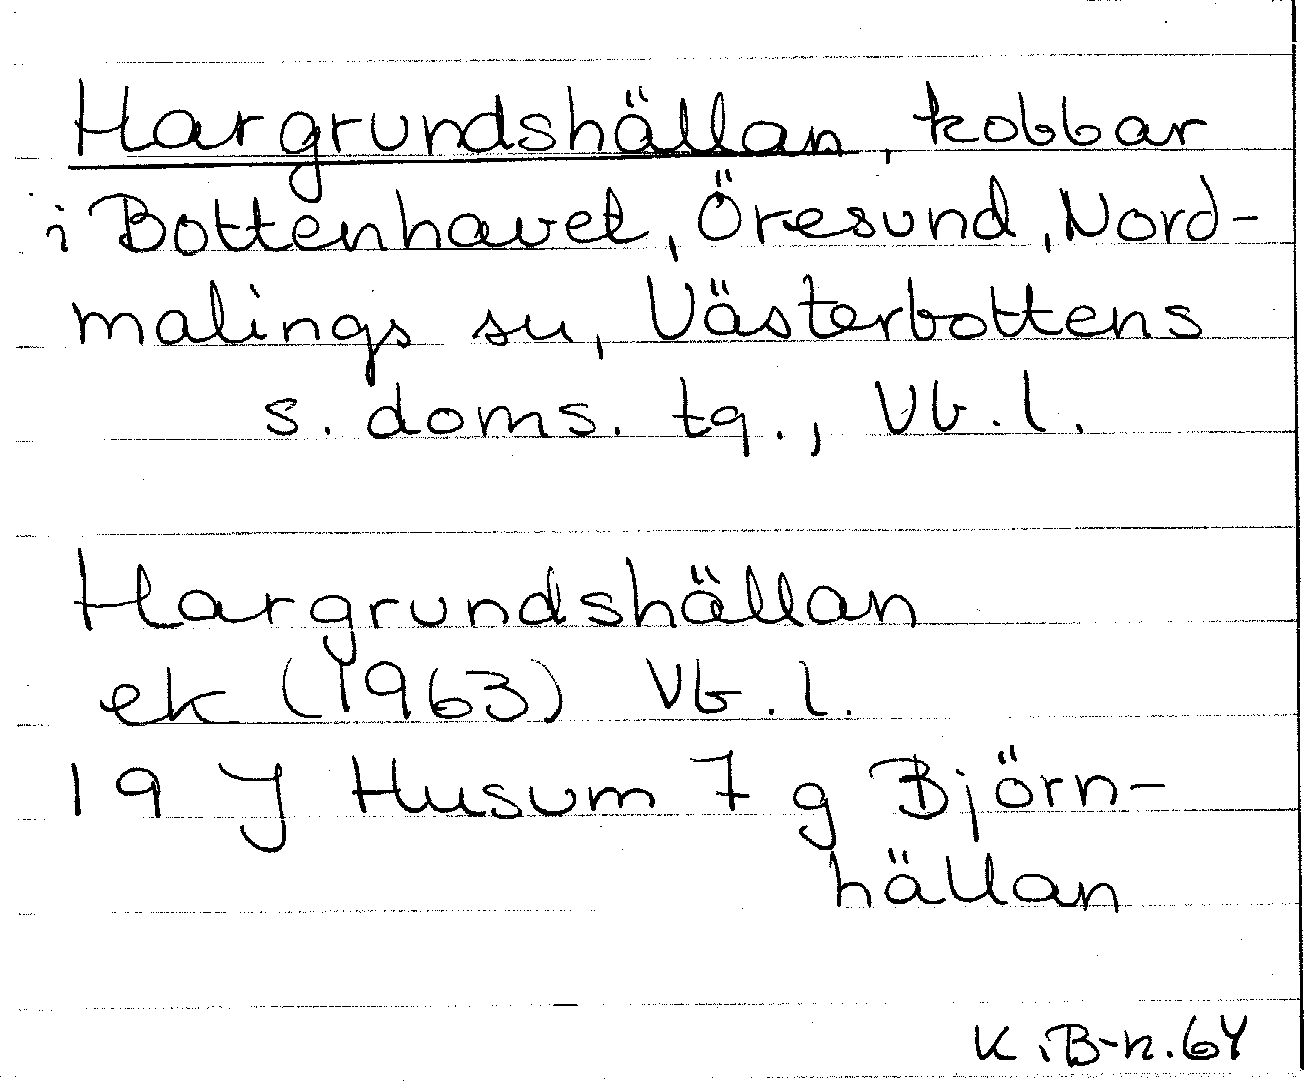 Hargrundshällan, kobbar
i Bottenhavet, Öresund, Nord-
malings sn, Västerbottens
s. doms. tg., Vb. l.
Hargrundshällan
ek (1963) Vb. l.
19 J Husum 7 g Björn-
hällan
K.B-n. 64